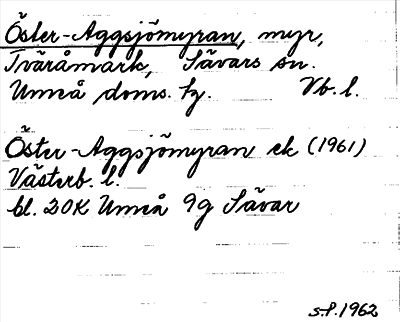 Öster-Aggsjömyran, myr,
Tväråmark, Sävars sn.
Umeå doms. tg. Vb. l.
Öster-Aggsjömyran ek (1961)
Västerb. l.
bl. 20K Umeå 9g Sävar
S.P. 1962